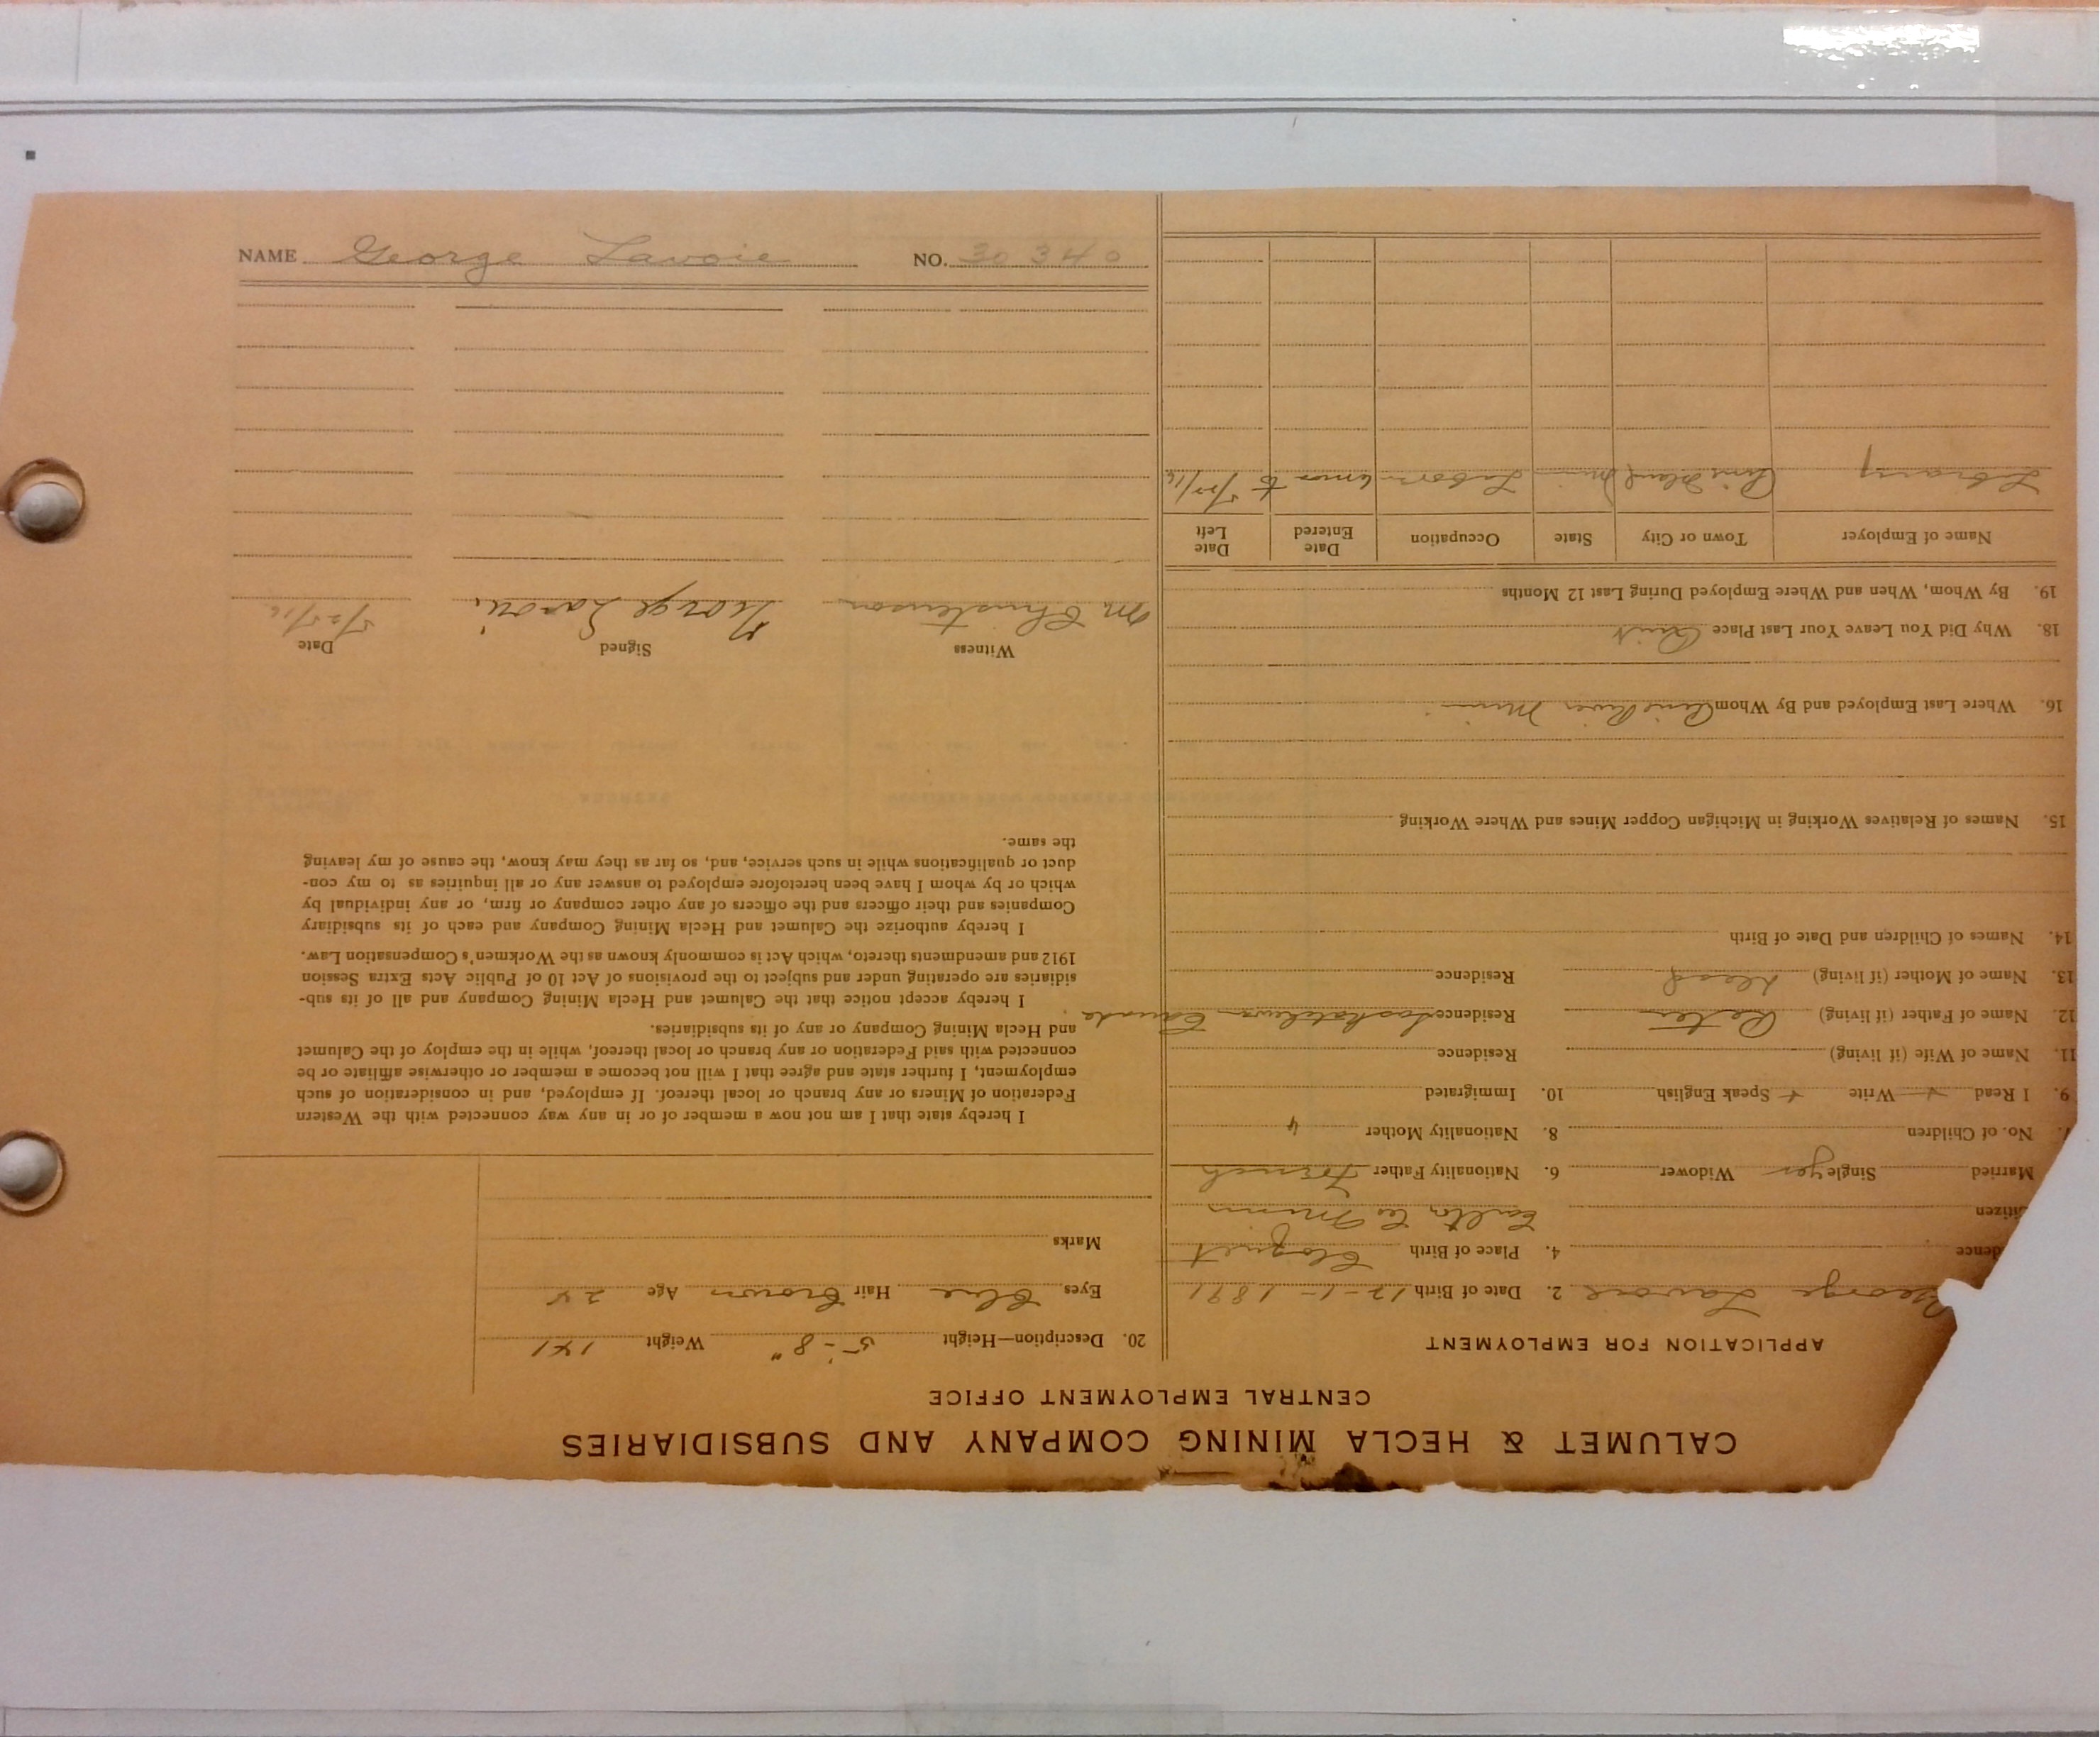 CALUMET & HECLA MINING COMPANY AND SUBSIDIARIES
CENTRAL EMPLOYMENT OFFICE
APPLICATION FOR EMPLOYMENT
George Lavoie 2. Date of Birth 12-1-1891
dence 4. Place of Birth Cloquet
itizen Carlton Co Minn
Married Single yes Widower 6. Nationality Father French
No. of Children 8. Nationality Mother "
9. I Read Write Speak English 10. Immigrated
11. Name of Wife (if living) Residence
12. Name of Father (if living) Peter Residence Saskatchewan Canada
13. Name of Mother (if living) dead Residence
14. Names of Children and Date of Birth
15. Names of Relatives Working in Michigan Copper Mines and Where Working
16. Where Last Employed and By Whom Minn
18. Why Did You Leave Your Last Place Quit
19. By Whom, When and Where Employed During Last 12 Months
Name of Employer Town or City State Occupation Date Entered Date Left
Labor 6 mos to
20. Description—Height 5'-8" Weight 141
Eyes Blue Hair Brown Age 24
Marks
I hereby state that I am not now a member of or in any way connected with the Western
Federation of Miners or any branch or local thereof. If employed, and in consideration of such
employment, I further state and agree that I will not become a member or otherwise affiliate or be
connected with said Federation or any branch or local thereof, while in the employ of the Calumet
and Hecla Mining Company or any of its subsidiaries.
I hereby accept notice that the Calumet and Hecla Mining Company and all of its sub-
sidiaries are operating under and subject to the provisions of Act 10 of Public Acts Extra Session
1912 and amendments thereto, which Act is commonly known as the Workmen's Compensation Law.
I hereby authorize the Calumet and Hecla Mining Company and each of its subsidiary
Companies and their officers and the officers of any other company or firm, or any individual by
which or by whom I have been heretofore employed to answer any or all inquiries as to my con-
duct or qualifications while in such service, and, so far as they may know, the cause of my leaving
the same.
Witness Signed Date
M Christenson George Lavoi
NAME George Lavoie NO. 30340